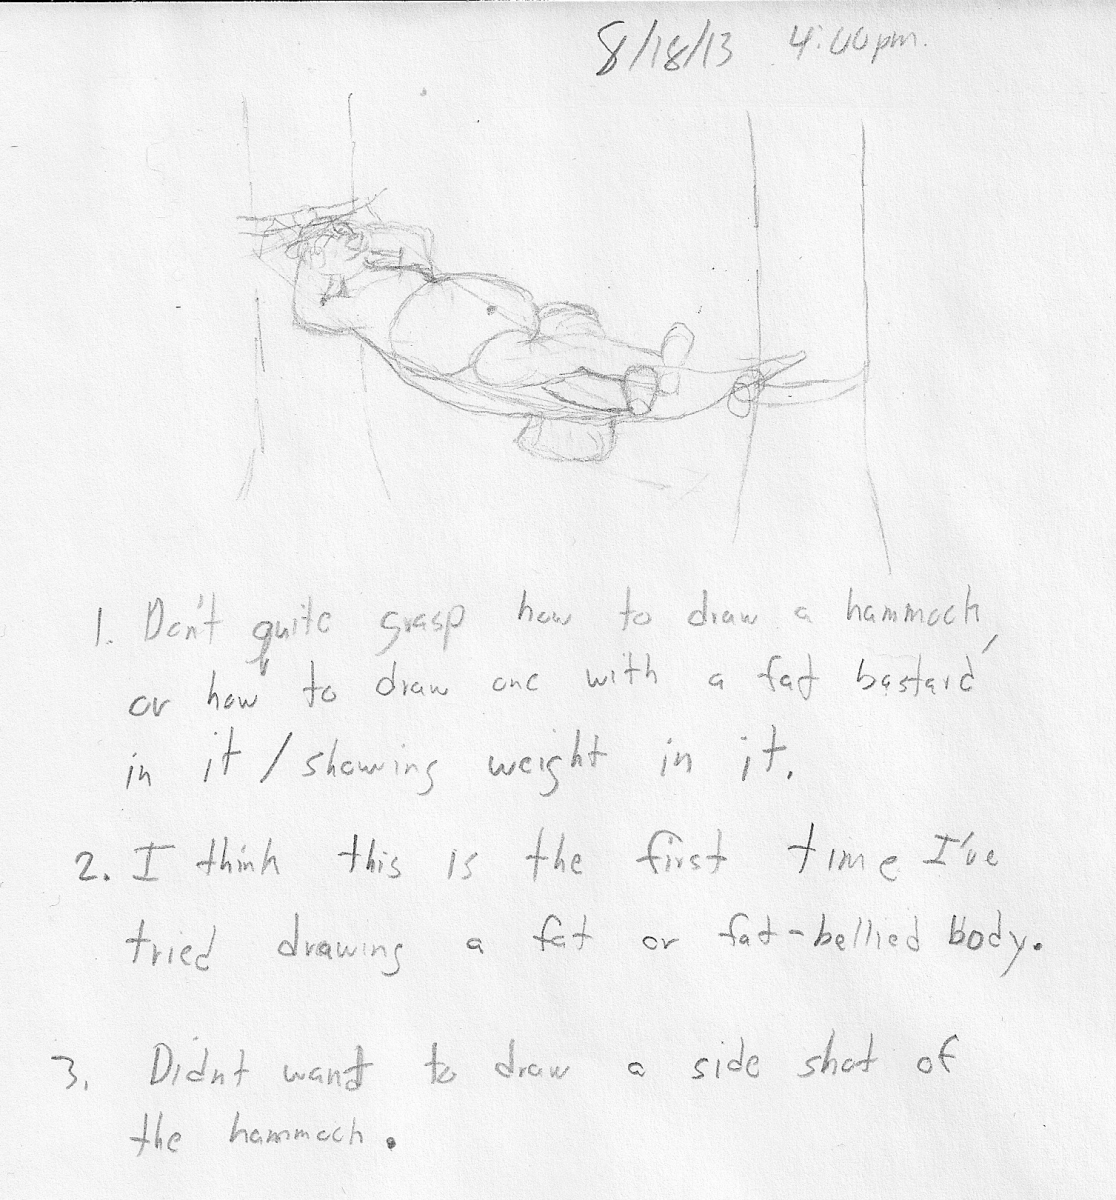 8/18/13 4:00pm.
1. Don't quite grasp how to draw a hammock,
or how to draw one with a fat bastard
in it / showing weight in it.
2. I think this is the first time I've
tried drawing a fat or fat-bellied body.
3. Didnt want to draw a side shot of
the hammock.